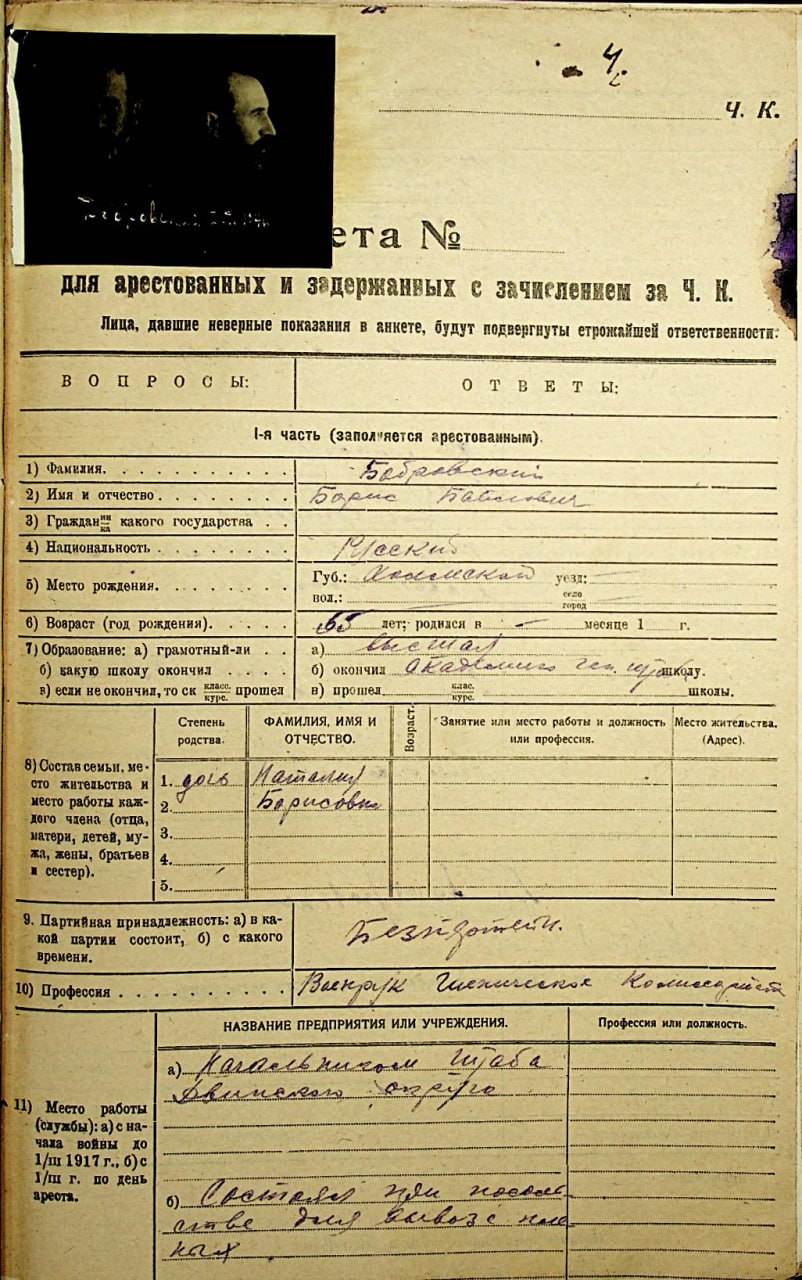 4.
Ч. К.
ета №
для арестованных и задержанных с зачислением за Ч. К.
Лица, давшие неверные показания в анкете, будут подвергнуты строжайшей ответственности.
ВОПРОСЫ:
ОТВЕТЫ:
I-я часть (заполняется арестованным).
1) Фамилия. Бобровский
2) Имя и отчество Борис Павлович
3) Граждан ин ка какого государства
4) Национальность Русский
5) Место рождения. Губ.: Холмской уезд:
вол.: село город
6) Возраст (год рождения). 65 лет; родился в месяце 1 г.
7) Образование: а) грамотный-ли а) высшая
б) какую школу окончил б) окончил Академию Ген. школу.
в) если не окончил, то ск класс. курс. прошел в) прошел клас. курс. школы.
8) Состав семьи, место жительства и место работы каждого члена (отца, матери, детей, мужа, жены, братьев и сестер).
Степень родства. ФАМИЛИЯ, ИМЯ И ОТЧЕСТВО. Возраст. Занятие или место работы и должность или профессия. Место жительства. (Адрес).
1. дочь Наталия
2. Борисовна
3.
4.
5.
9. Партийная принадлежность: а) в какой партии состоит, б) с какого времени.
10) Профессия Военрук Комиссариата
НАЗВАНИЕ ПРЕДПРИЯТИЯ ИЛИ УЧРЕЖДЕНИЯ. Профессия или должность.
11) Место работы (службы): а) с начала войны до 1/III 1917 г., б) с 1/III г. по день ареста.
а) Начальником штаба
Двинского округа
б) Состоял при посоль
стве для вывоза плен
ных